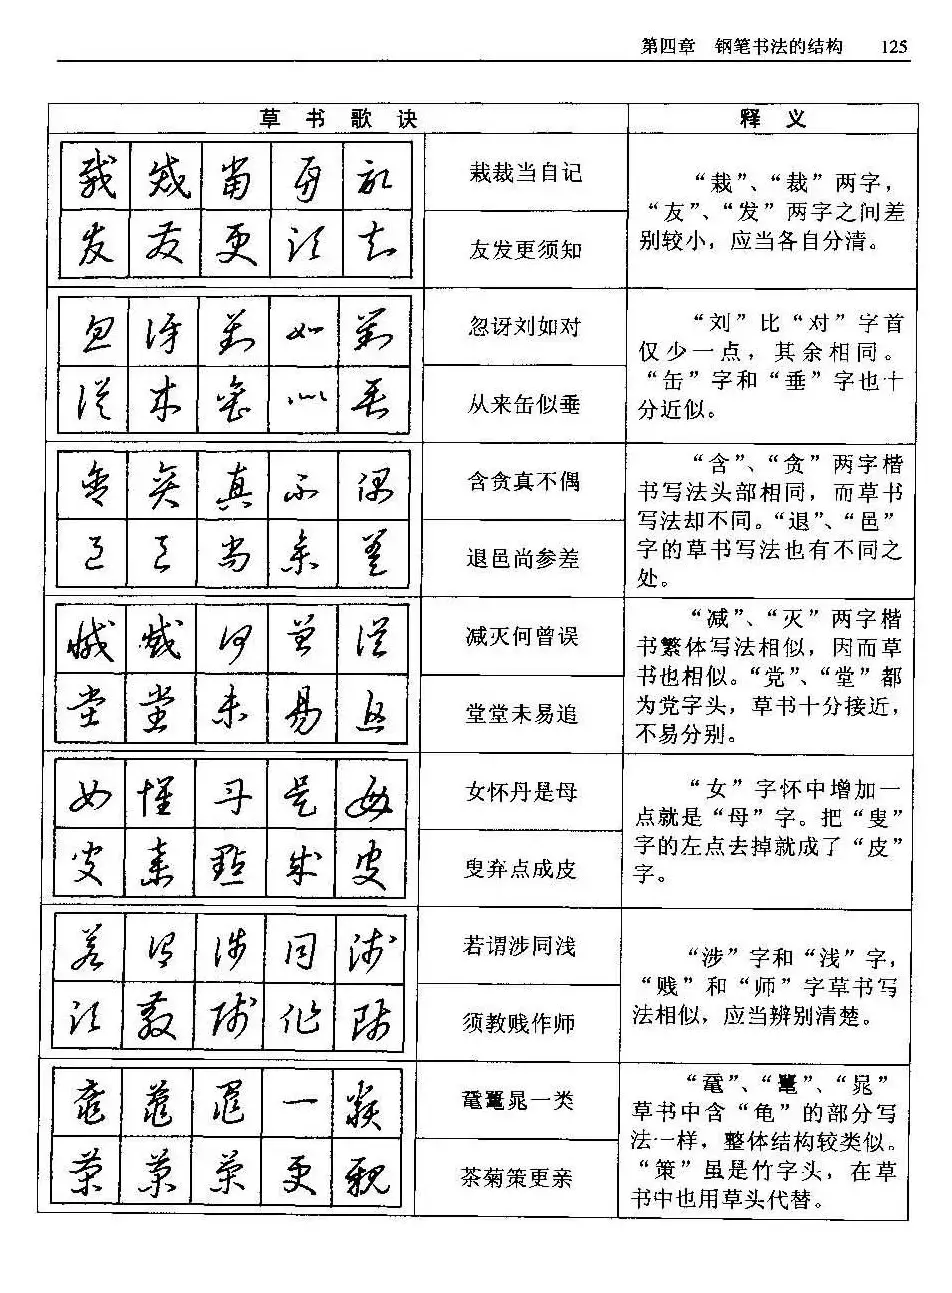 第四章 钢笔书法的结构 125
草书歌诀 释义
栽裁当自记
友发更须知
“栽”、“裁”两字，
“友”、“发”两字之间差
别较小，应当各自分清。
忽讶刘如对
从来缶似垂
“刘”比“对”字首
仅少一点，其余相同。
“缶”字和“垂”字也十
分近似。
含贪真不偶
退邑尚参差
“含”、“贪”两字楷
书写法头部相同，而草书
写法却不同。“退”、“邑”
字的草书写法也有不同之
处。
减灭何曾误
堂堂未易追
“减”、“灭”两字楷
书繁体写法相似，因而草
书也相似。“党”、“堂”都
为党字头，草书十分接近，
不易分别。
女怀丹是母
叟弃点成皮
“女”字怀中增加一
点就是“母”字。把“叟”
字的左点去掉就成了“皮”
字。
若谓涉同浅
须教贱作师
“涉”字和“浅”字，
“贱”和“师”字草书写
法相似，应当辨别清楚。
鼋鼍晁一类
茶菊策更亲
“鼋”、“鼍”、“晁”
草书中含“龟”的部分写
法一样，整体结构较类似。
“策”虽是竹字头，在草
书中也用草头代替。